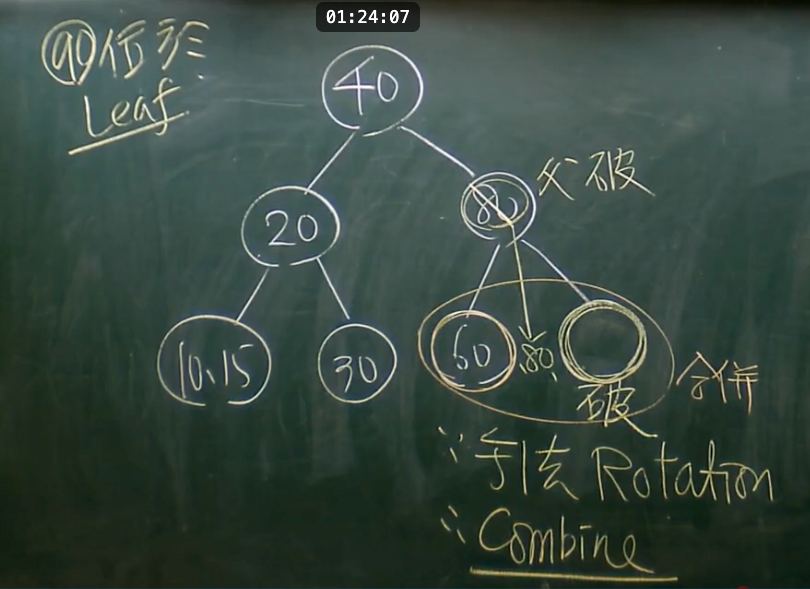 01:24:07
90位於
Leaf
40
20
80
父破
10、15
30
60
80、
破
合併
∵無法Rotation
∴Combine